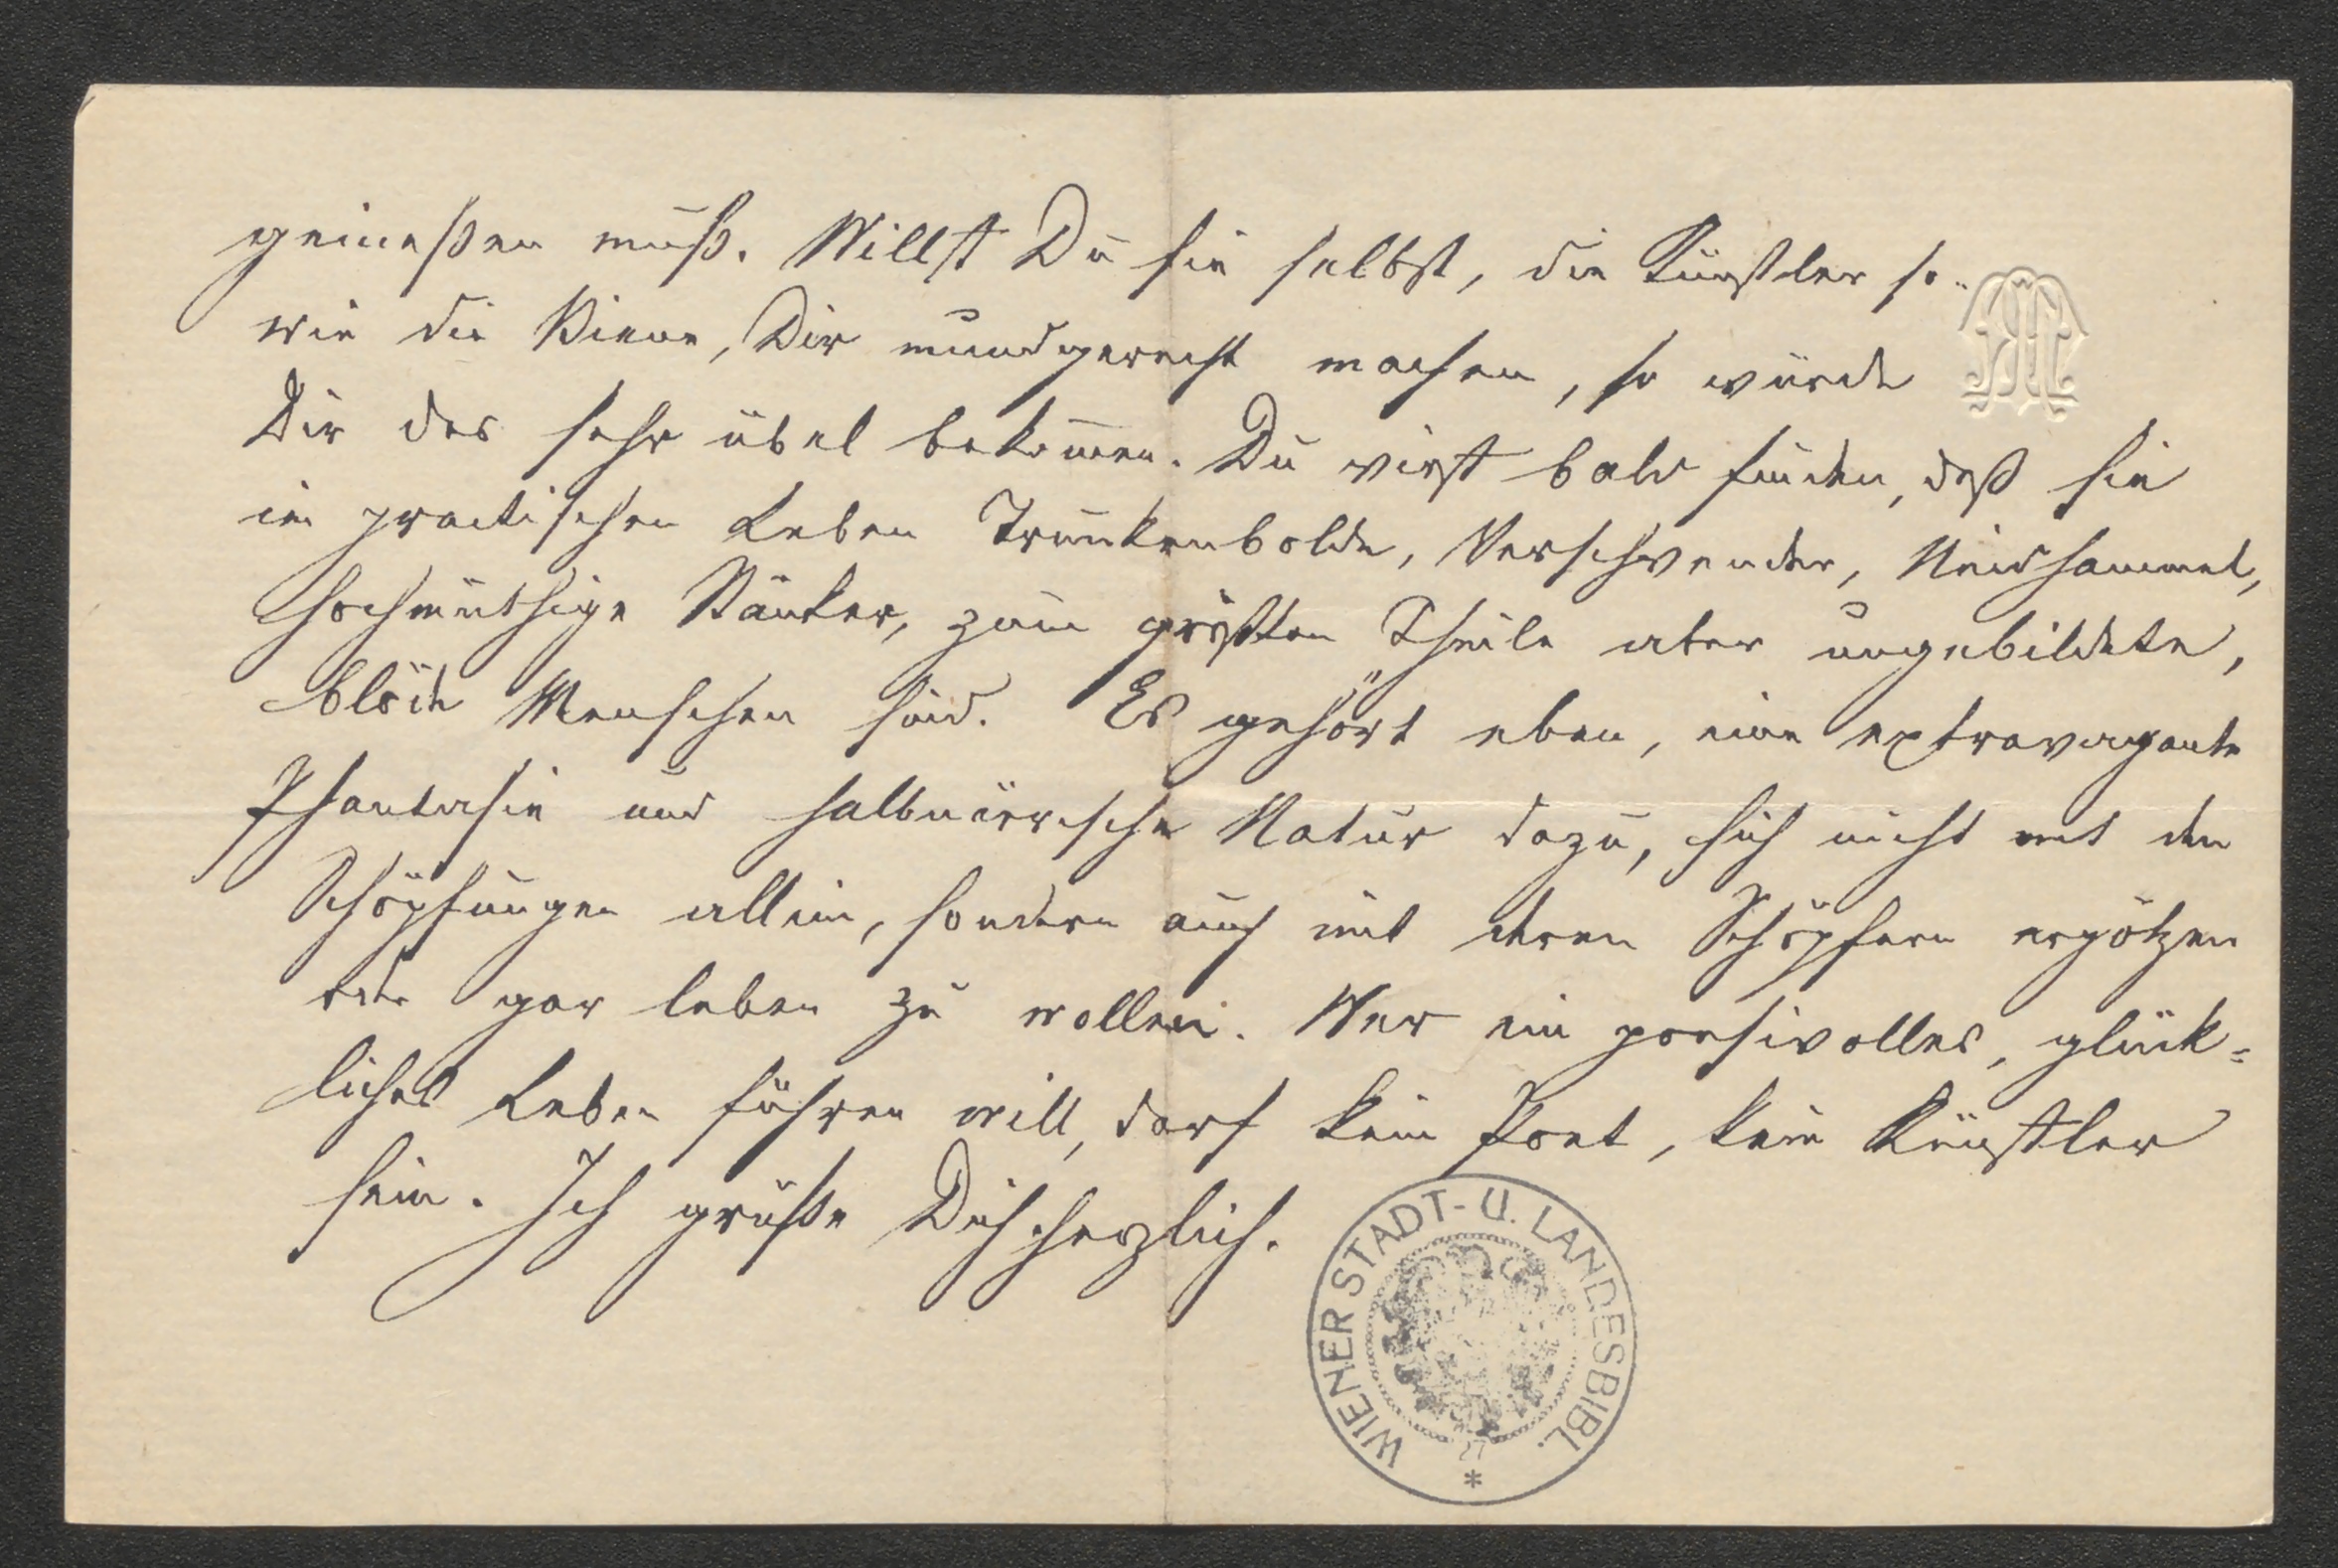 genießen muß. Willst Du sie selbst, die Künstler so-
wie die Biene, Dir mundgerecht machen, so würde
Dir das sehr übel bekommen. Du wirst bald finden, daß sie
im practischen Leben Trunkenbolde, Verschwender, Neidhammel,
hochmüthige Stänker, zum größten Theile aber ungebildete,
blöde Menschen sind. Es gehört eben, eine extravagante
Phantasie und halbnärrische Natur dazu, sich nicht mit den
Schöpfungen allein, sondern auch mit deren Schöpfern ergötzen
oder gar leben zu wollen. Wer ein poesievolles, glück=
liches Leben führen will, darf kein Poet, kein Künstler
sein. Ich grüße Dich herzlich.
WIENER STADT- U. LANDESBIBL.